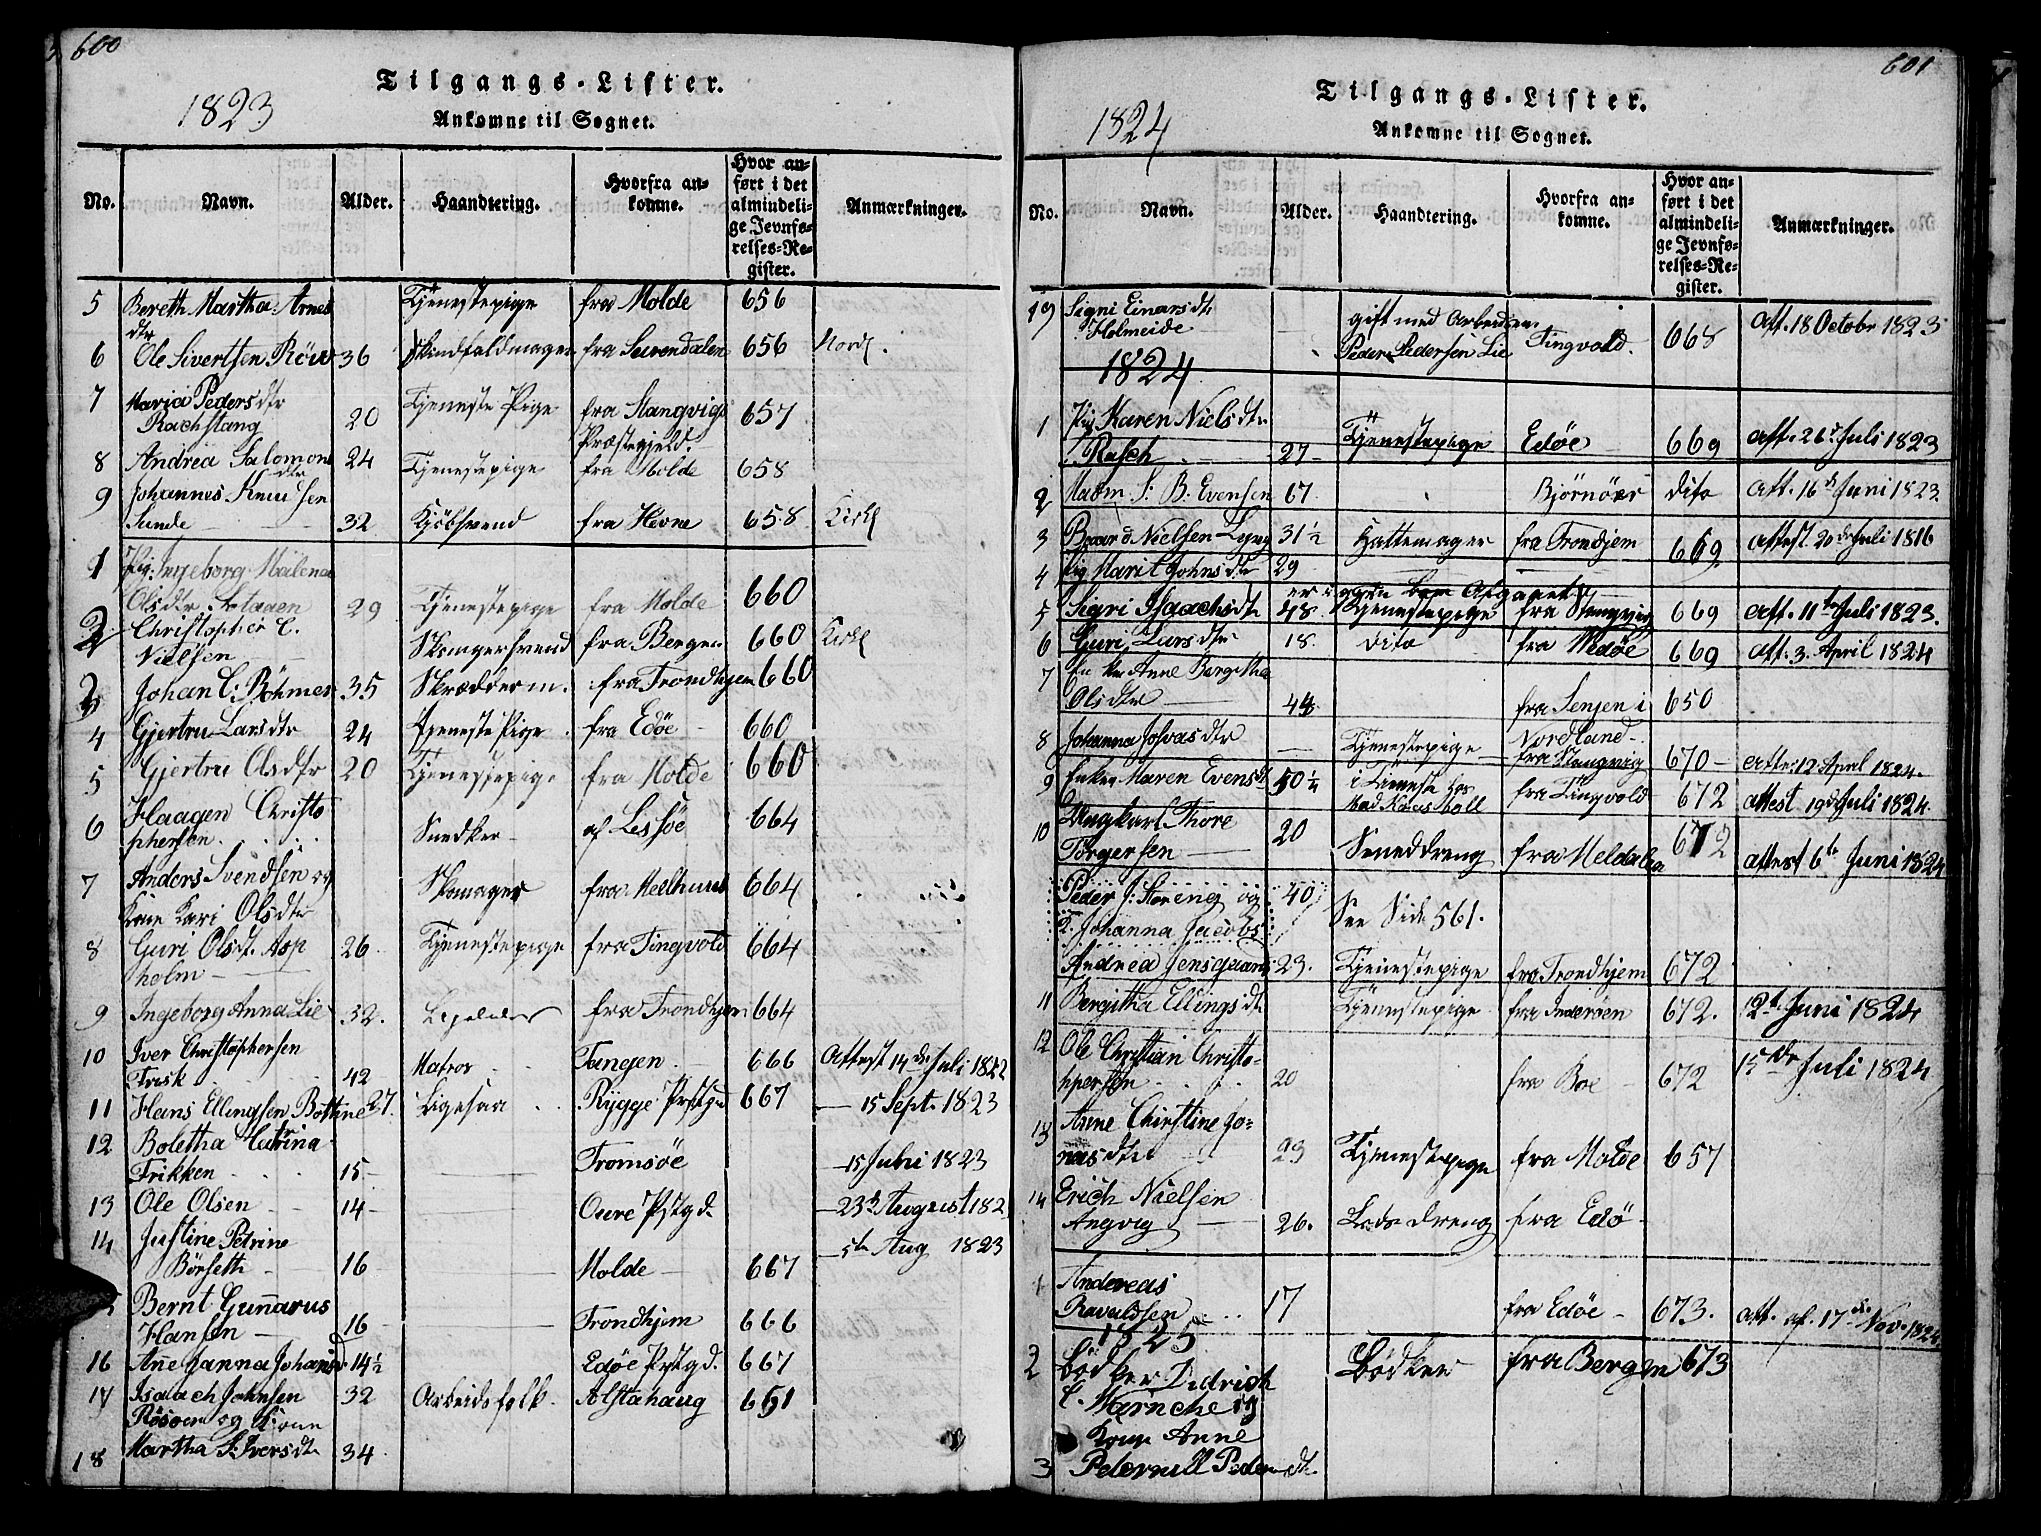 600
1823
Tilgangs-Lister.
Ankomne til Sognet.
No. Navn. Alder. Haandtering. Hvorfra ankomne. Hvor anført i det almindelige Jevnførelses-Register. Anmærkninger.
5 Bereth Martha Arnes dtr Tjenestepige fra Molde 656
6 Ole Sivertsen Röv 36 Skindfeldmager fra Surendalen 656
7 Maria Pedersdtr
Rachstang 20 Tjeneste Pige fra Stangvigs Præstegjeld. 657
8 Andrea Salomons dtr 24 Tjenestepige fra Molde 658
9 Johannes Knudsen
Sunde 32 fra Hevne 658
1 Pig. Ingeborg Malena
Olsdtr 29 Tjenestepige fra Molde 660
2 Christopher C.
Nielsen Skomgersvend fra Bergen 660
3 Johan C: Böhmer 35 Skrædderm. fra Trondhjem 660
4 Gjertru Larsdtr 24 Tjeneste Pige fra Edöe 660
5 Gjertru Olsdtr 20 Tjenestepige fra Molde 660
6 Haagen Christo
phersen Snedker af Lessöe 664
7 Anders Svendsen og
Kone Kari Olsdtr Skomager fra Meelhuus 664
8 Guri Olsdtr Asp
holm 26 Tjenestepige fra Tingvold 664
9 Ingeborg Anna Lie 32. fra Trondhjem 664
10 Iver Christophersen
Frisk 42 Matros Tangen 666 Attest 14de Juli 1822
11 Hans Ellingsen Bottne 27. Ligesaa Rygge Prstgd 667 — 15 Sept. 1823
12 Boletha Catrina
Frikken 15 Tromsöe — 15 Juni 1823
13 Ole Olsen 14 Oure Pstgd. — 23de August 182
14 Justine Petrine
Börseth 16 Molde 667 — 5te Aug 1823
Bernt Gunnarus
Hansen 16 Trondhjem 666
16 Anne Janna Johansd 14½ Edöe Prstgd. 667
17 Isaach Johnsen 32 Arbeidsfolk Alstahaug 661
Rösoen og Kone
18 Martha S: Iversdtr 34
601
1824
Tilgangs-Lister.
Ankomne til Sognet.
No. Navn. Alder. Haandtering. Hvorfra ankomne. Hvor anført i det almindelige Jevnførelses-Register. Anmærkninger.
19 Signi Einarsdtr
Holmeide gift med Arbeidsm. Peder Pedersen Lie Tingvold. 668 Att. 18 Octobr 1823
1824
1 Pig Karen Nielsdtr
Rasch 27 Tjenestepige Edöe 669 Att. 26 Juli 1823
2 Madm S: B. Evensen 67 Bjørnöer dito Att. 16de Juni 1823.
3 Baard Nielsen Lyng 31½ Hattemager fra Trondhjem 669 Attest 20de Juli 1816
4 Pig Marit Johnsdtr 29
er igjen
5 Sigri Isaachsdtr 48. Tjenestepige fra Stangvig 669 Att. 11te Juli 1823.
6 Guri Larsdtr 18. dito fra Edöe 669 Att. 3. April 1824
7 Anne Bergitha
Olsdtr 48 fra Senjen i Nordland 650
8 Johanna Josvasdtr Tjenestepige fra Stangvig 670 Attest 12 April 1824.
9 Enken Maren Evensdt 50½ i Tjeneste hos fra Tingvold 672 Attest 19de Juli 1824
10 Ungkarl Thore
Torgersen 20 fra Meldalen 672 Attest 6te Juni 1824
Peder J: Storeng og 40 See Side 561.
K. Johanna Jacobs
Andrea Jensgaard 23. Tjenestepige fra Trondhjem 672
11 Bergitha Ellingsdtr Tjenestepige fra Inderöen 672. 12te Juni 1824
12 Ole Christian Christo-
phersen 20 fra Boe 672 15de Juli 1824
13 Anne Christine Jo-
nasdtr 23 Tjenestepige fra Molde 657
14 Erich Nielsen
Angvig 26. fra Edö
1 Andereas
Ravaldsen 17 fra Edöe 673. att. af 17de Nov. 1824
1825
2 Bödker Didrich Bödker fra Bergen 673
C. Marnche og
Kone Anne
3 Peternill Pedersdtr.